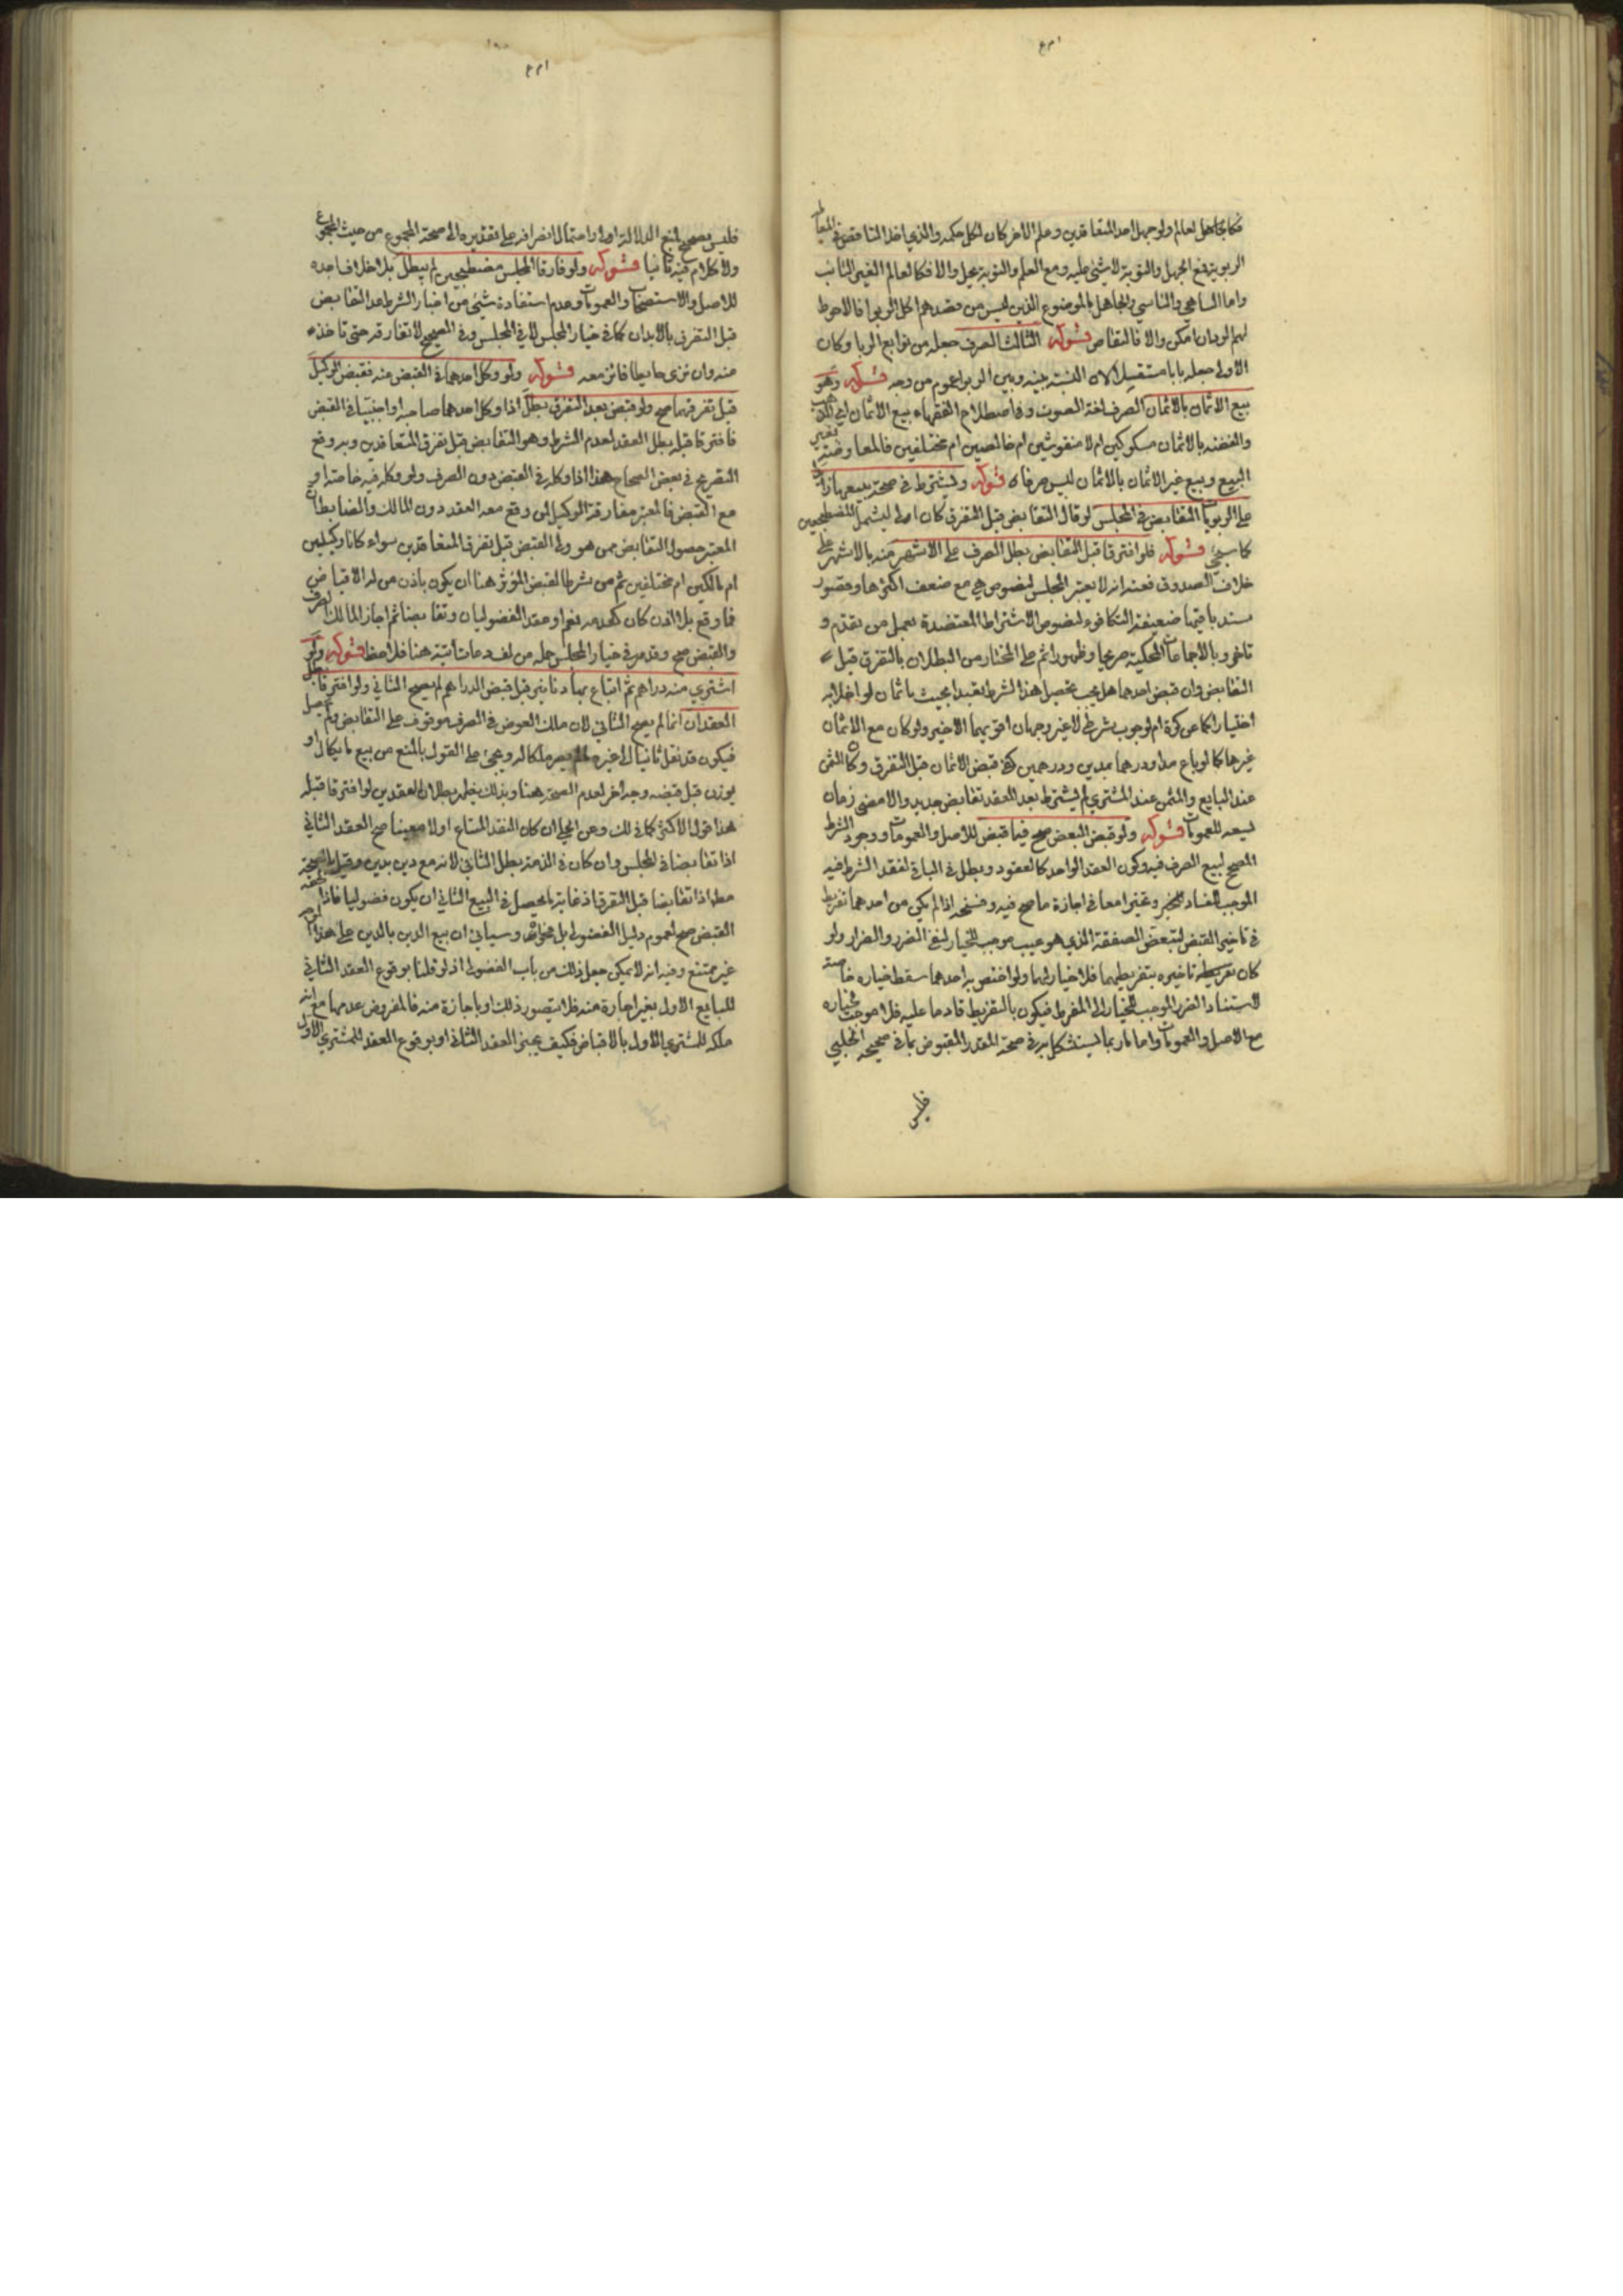 فكالجاهل لعالم ولو جهل احد المتعاقدين وعلم الاخر كان لكل حكمه والذي اخذ
الربوية فمع الجهل والتوبة لا شيء عليه ومع العلم والتوبة يحل والا فكالعالم الغير التائب
واما الساهي والناسي والجاهل بالموضوع الذين ليس من قصدهم اكل الربوا فالاحوط
لهم الرد ان امكن والا فالتقاص قوله الثالث الصرف جعله من توابع الربا وكان
الاولى جعله بابا مستقلا لان النسبة بينه وبين الربوا عموم من وجه قوله وهو
بيع الاثمان بالاثمان الصرف لغة الصوت وفي اصطلاح الفقهاء بيع الاثمان اي الذهب
والفضة بالاثمان مسكوكين ام لا منقوشين ام خالصين ام مختلفين فالمعاوضة بغير
البيع وبيع غير الاثمان بالاثمان ليس صرفا قوله ويشترط في صحة بيعها زايدا
على الربويات التقابض في المجلس لو قال التقابض قبل التفرق كان اولى ليشمل المصطحبين
كما سيجيء قوله فلو افترقا قبل التقابض بطل الصرف على الاشهر منه بالاشهر على
خلاف الصدوق فعنه انه لا يعتبر المجلس لنصوص هي مع ضعف اكثرها وقصور
سند باقيها ضعيفة التكافوء لنصوص الاشتراط المعتضدة بعمل من تقدم و
تاخر وبالاجماعات المحكية صريحا وظهورا ثم على المختار من البطلان بالتفرق قبل
التقابض وان قبض احدهما هل يجب تحصيل هذا الشرط تعبدا بحيث ياثمان لو اخلا به
اختيارا كما عن كرة ام لوجوب شرطي لا غير وجهان اقويهما الاخير ولو كان مع الاثمان
غيرها كما لو باع مدا ودرهما بمدين ودرهمين كفى قبض الاثمان قبل التفرق ولو كان الثمن
عند البايع والمثمن عند المشتري لم يشترط بعد العقد تقابض جديد والا مضى زمان
يسعه للعمومات قوله ولو قبض البعض صح فيما قبض للاصل والعمومات ووجود الشرط
المصحح لبيع الصرف فيه وكون العقد الواحد كالعقود وبطل في الباقي لفقد الشرط فيه
الموجب للفساد وتخيرا معا في اجازة ما صح فيه وفسخه اذا لم يكن من احدهما تفريط
في تاخير القبض لتبعض الصفقة الذي هو عيب موجب للخيار لنفي الضرر والضرار ولو
كان تاخيره بتفريطهما فلا خيار لهما ولو اختص به احدهما سقط خياره خاصة
لاستناد الضرر الموجب للخيار الى المفرط فيكون بالتفريط قادما عليه فلا موجب لخياره
مع الاصل والعمومات واما ما ربما يستشكل به في صحة القدر المقبوض بما في صحيحة الحلبي
فليس
فليس يصحي لمنع الدلالة اولا واحتمال انصرافه على تقديرها الى صحة المجموع من حيث المجموع
ولا كلام فيه ثانيا قوله ولو فارقا المجلس مصطحبين لم يبطل بلا خلاف اجده
للاصل والاستصحاب والعمومات وعدم استفادة شيء من اخبار الشرط عدا التقابض
قبل التفرق بالابدان كما في خيار المجلس لا في المجلس وفي الصحيح لا تفارقه حتى تاخذ
منه وان نزى حايطا فانز معه قوله ولو وكل احدهما في القبض منه فقبض الوكيل
قبل تفرقهما صح ولو قبض بعد التفرق بطل اذا وكل احدهما صاحبه او اجنبيا في القبض
فافترقا قبله بطل العقد لعدم الشرط وهو التقابض قبل تفرق المتعاقدين وبه وقع
التصريح في بعض الصحاح هذا اذا وكله في القبض دون الصرف ولو وكله فيه خاصة او
مع القبض فالمعتبر مفارقة الوكيل لمن وقع معه العقد دون المالك والضابط ان
المعتبر حصول التقابض ممن هو ولي القبض قبل تفرق المتعاقدين سواء كانا وكيلين
ام مالكين ام مختلفين ثم من شرط القبض المؤثر هنا ان يكون باذن من له الاقباض
فما وقع بلا اذن كان كعدمه نعم لو عقد الفضوليان وتقابضا ثم اجاز المالك الصرف
والقبض صح وقد مر في خيار المجلس جملة من آتية هنا فلاحظ قوله ولو
اشترى منه دراهم ثم ابتاع بها دنانير قبل قبض الدراهم لم يصح الثاني ولو افترقا بطل
العقدان انما لم يصح الثاني لان ملك العوض في الصرف موقوف على التقابض ولم يحصل
فيكون قد نقل ثانيا الى غيره ما لم يصر ملكا له ويجيء على القول بالمنع من بيع ما يكال او
يوزن قبل قبضه وجه اخر لعدم الصحة هنا وبذلك يظهر بطلان العقدين لو افترقا قبله
هذا قول الاكثر كما في لك وعن الحلي ان كان النقد المبتاع اولا معينا صح العقد الثاني
اذا تقابضا في المجلس وان كان في الذمة بطل الثاني لانه بيع دين بدين وقيل بالصحة
مطلقا اذا تقابضا قبل التفرق اذ غاية ما يحصل في البيع الثاني ان يكون فضوليا فاذا لحقه
القبض صح لعموم دليل الفضولي بل فحواه وسياتي ان بيع الدين بالدين على هذا
غير ممتنع وفيه انه لا يمكن جعل ذلك من باب الفضولي اذ لو قلنا بوقوع العقد الثاني
للبايع الاول بغير اجازة منه فلا يتصور ذلك او باجازة منه فالمفروض عدمها مع انه
ملكه للمشتري الاول بالاقباض فكيف يجيز العقد الثاني او بوقوع العقد للمشتري الاول